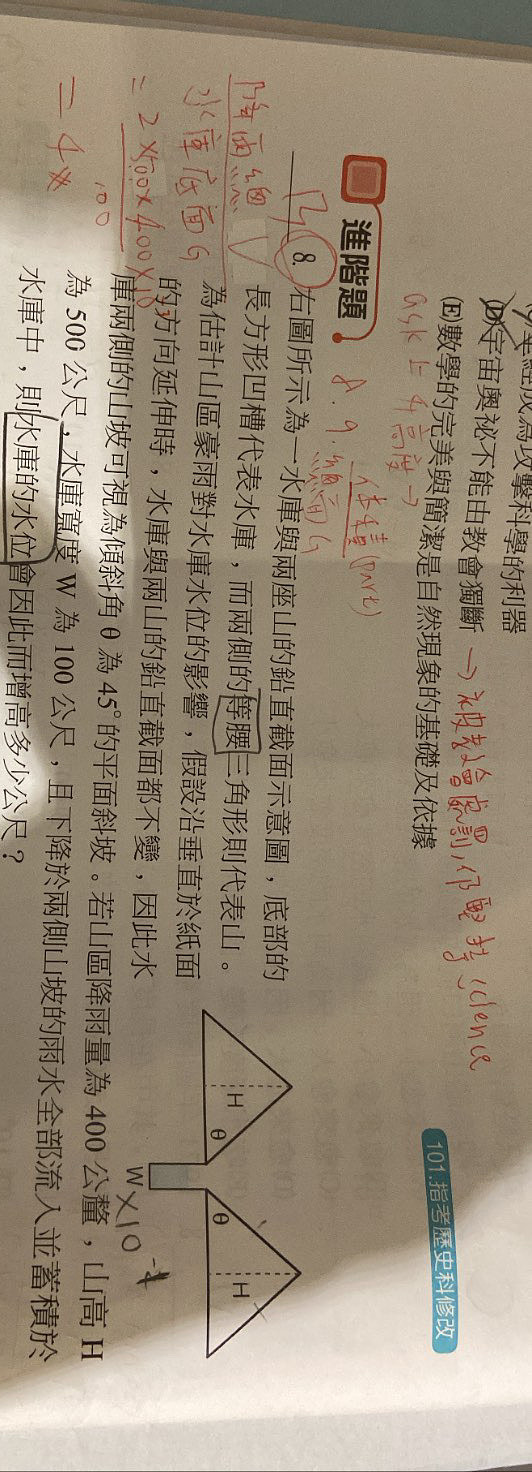 成為攻擊科學的利器
(D)宇宙奧祕不能由教會獨斷 →被教會處罰,
science
(E)數學的完美與簡潔是自然現象的基礎及依據
101.指考歷史科修改
進階題
8. 9. 總面
體積
8. 右圖所示為一水庫與兩座山的鉛直截面示意圖,底部的
長方形凹槽代表水庫,而兩側的等腰三角形則代表山。
為估計山區豪雨對水庫水位的影響,假設沿垂直於紙面
的方向延伸時,水庫與兩山的鉛直截面都不變,因此水
庫兩側的山坡可視為傾斜角 θ 為 45° 的平面斜坡。若山區降雨量為 400 公釐,山高 H
為 500 公尺,水庫寬度 W 為 100 公尺,且下降於兩側山坡的雨水全部流入並蓄積於
水庫中,則水庫的水位會因此而增高多少公尺?
H
θ
θ
H
W
降雨總V
水庫底面
= 2×500×400×10
100
= 4